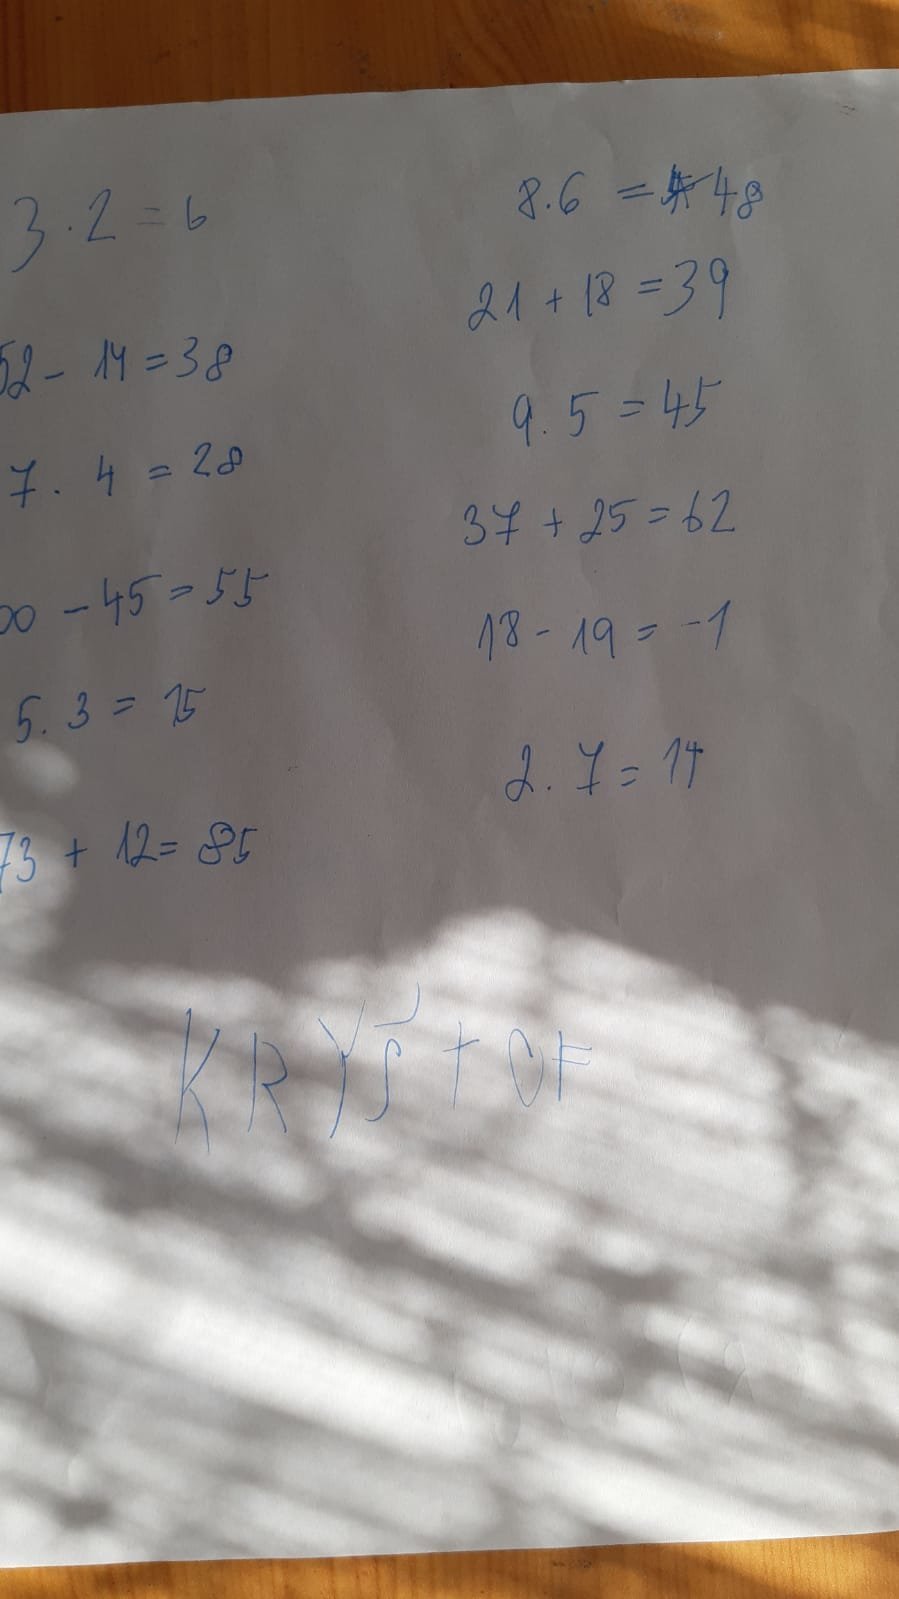 3 . 2 = 6
52 - 14 = 38
7 . 4 = 28
00 - 45 = 55
5 . 3 = 15
73 + 12 = 85
8 . 6 = 48
21 + 18 = 39
9 . 5 = 45
37 + 25 = 62
18 - 19 = -1
2 . 7 = 14
KRYŠTOF